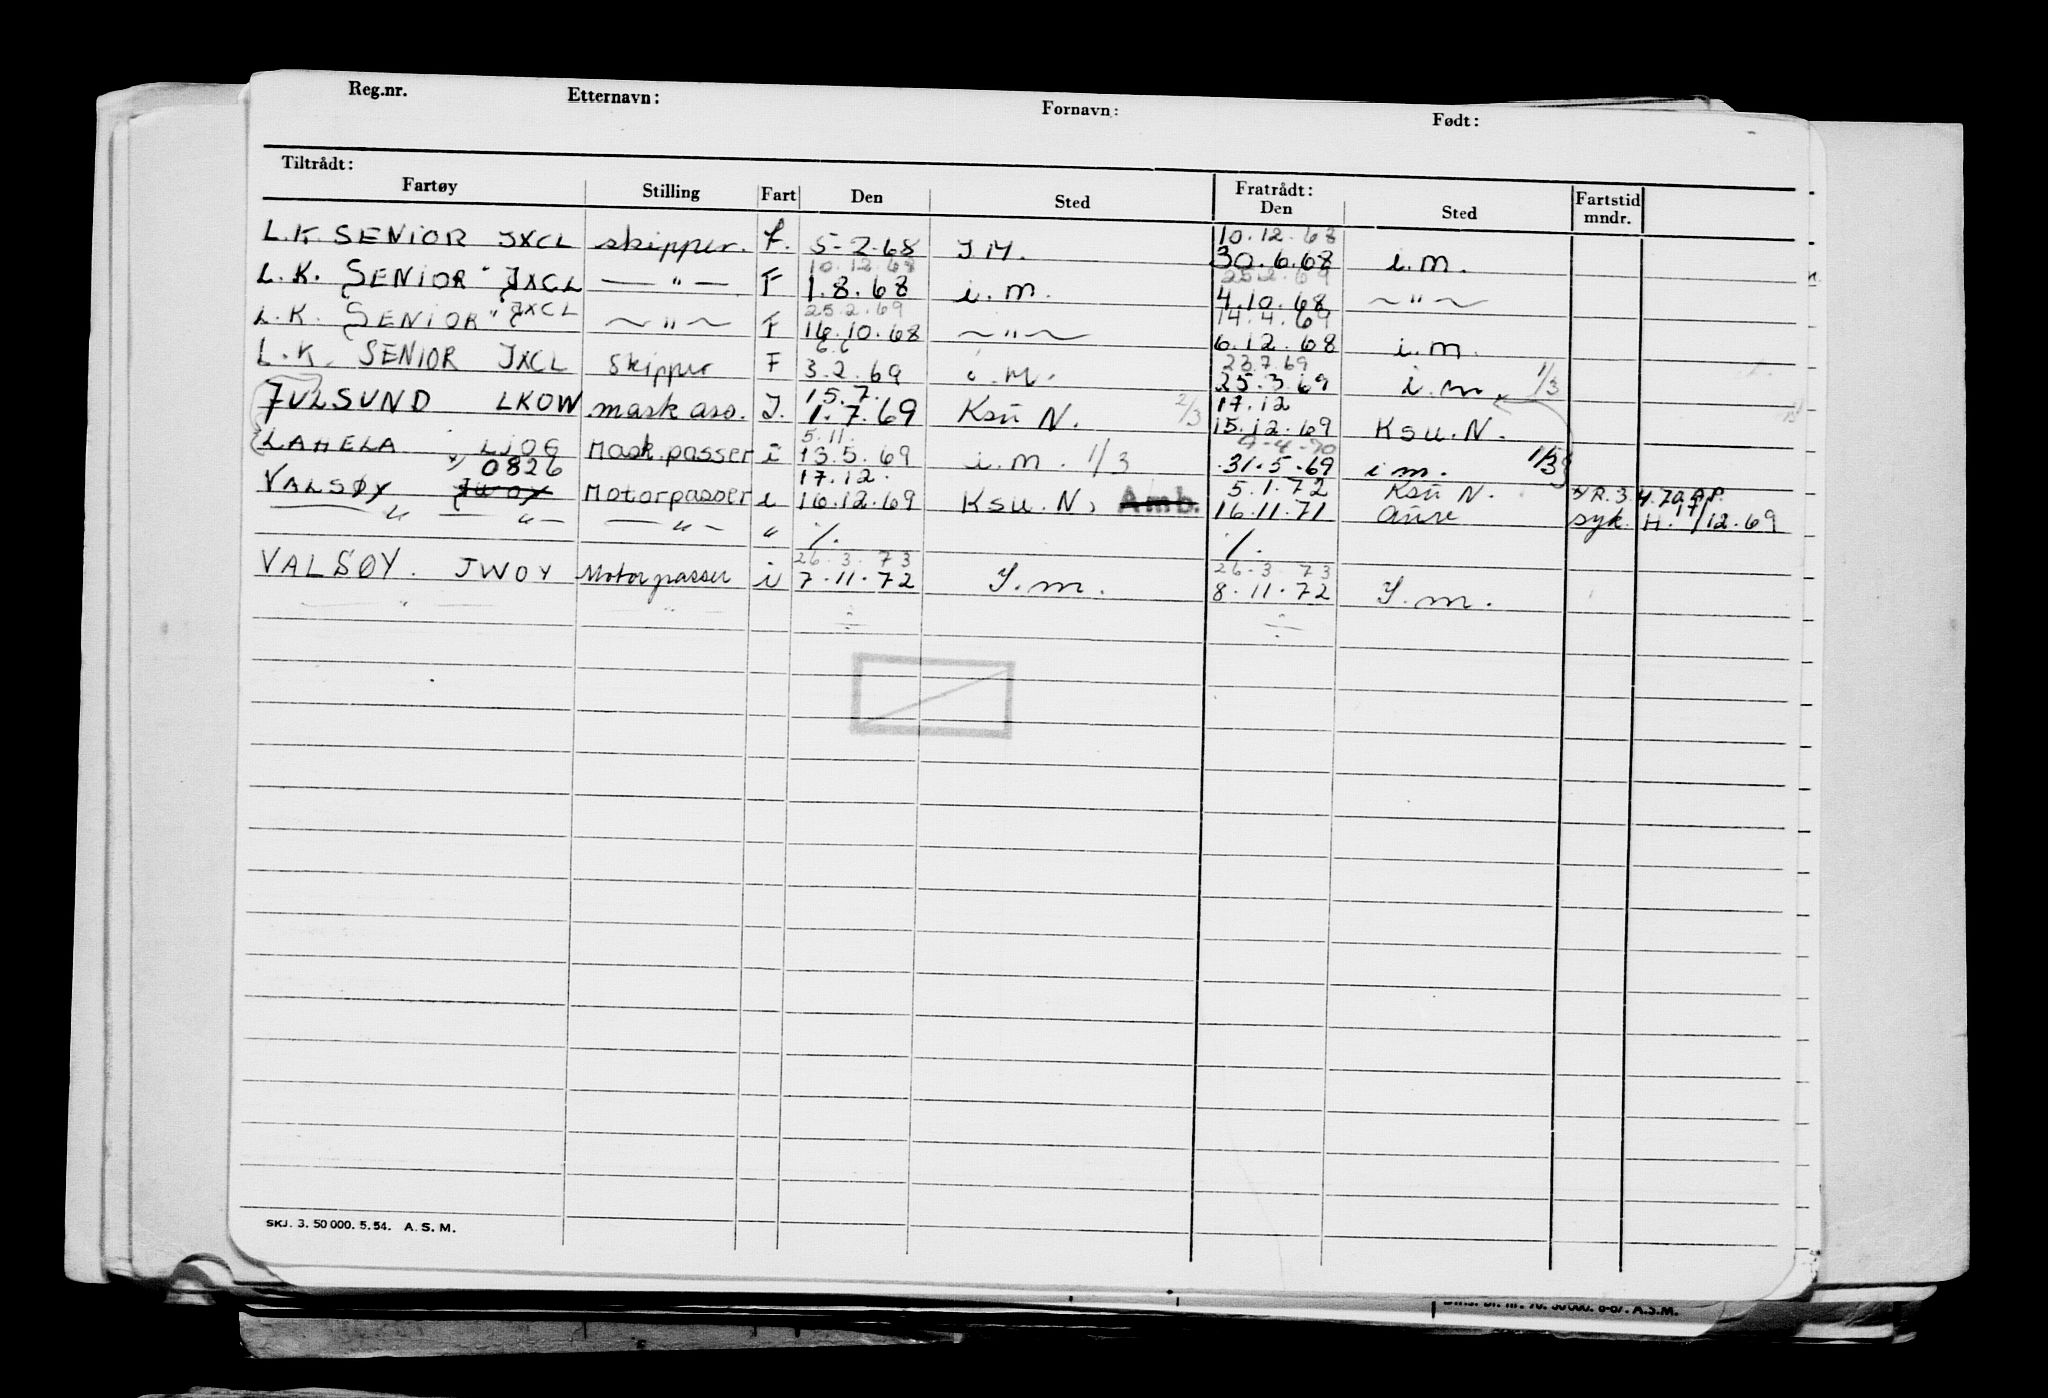 Reg.nr. Etternavn: Fornavn: Født:
Tiltrådt: Fratrådt:
Fartøy Stilling Fart Den Sted Den Sted Fartstid mndr.
10.12.68
L.K. SENIOR JXCL skipper. F. 5-2-68 I M. 30.6.68 i.m.
10.12.68 25.2.69
L.K. SENIOR" JXCL — " — F 1.8.68 i.m. 4.10.68 ~ " ~
25.2.69 14.4.69
L.K. SENIOR" JXCL ~ " ~ F 16.10.68 ~ " ~ 6.12.68 i.m.
6.6 23.7.69
L.K. SENIOR JXCL Skipper F 3.2.69 i.M. 25.3.69 i.m. 1/3
15.7. 17.12
JULSUND LKOW mask ass. I. 1.7.69 Ksu N. 2/3 15.12.69 Ksu.N.
5.11. 9-4-70
LAHELA LJOG Mask.passer i 13.5.69 i.m. 1/3 31.5.69 i m. 1/3
0826 17.12. 5.1.72 Ksu N. R.3.4.70
VALSØY JWOY Motorpasser i 16.12.69 Ksu.N, Amb. 16.11.71 Aure syk. H. 17/12.69
— " — " — — " — " %. %.
26.3.73 26.3.73
VALSØY. JWOY Motorpasser i 7.11.72 I.m. 8.11.72 I.m.
— " — " ÷ ÷
SKJ. 3. 50 000. 5.54. A.S.M.